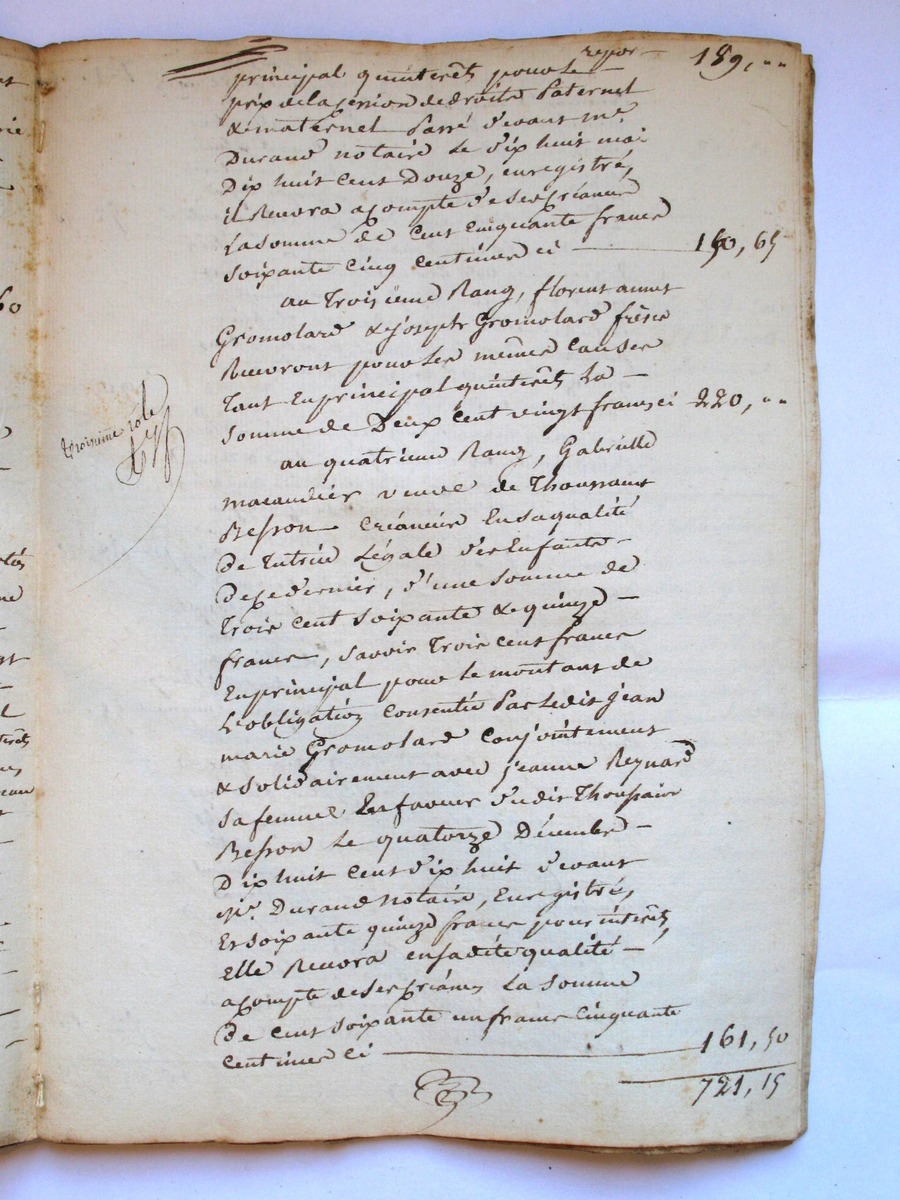 repor — 189, ""
principal qu'intérêts pour le
prix de la cession de droits Paternel
& maternel Passé devant me.
Durand notaire le dix huit mai
Dix huit Cent Douze, enregistré,
il Recevra acompte de ses créances
La somme de Cent cinquante francs
soixante cinq centimes ci — 150, 65
au Troisieme Rang, florent annet
Gromolard & joseph Gromolard frères
Recevront pour les mêmes Causes
Tant En principal qu'intérêts La —
somme de Deux Cent vingt francs ci 220, ""
Troisieme rôle
au quatrieme Rang, Gabrielle
macaudier veuve de Thoussaint
Besson Créancière En sa qualité
De Tutrice Légale des Enfants —
De ce dernier, d'une somme de
Trois Cent soixante & quinze —
francs, savoir Trois cent francs
En principal pour le montant de
L'obligation Consentie Par ledit jean
marie Gromolard Conjointement
& solidairement avec jeanne Reynard
sa femme En faveur dudit Thoussaint
Besson le quatorze Décembre —
Dix huit Cent dix huit devant
Me. Durand notaire, Enregistré,
Et soixante quinze francs pour intérêts,
Elle Recevra en sadite qualité —
acompte de ses créances La somme
De cent soixante un francs Cinquante
Centimes Ci — 161, 50
721, 15